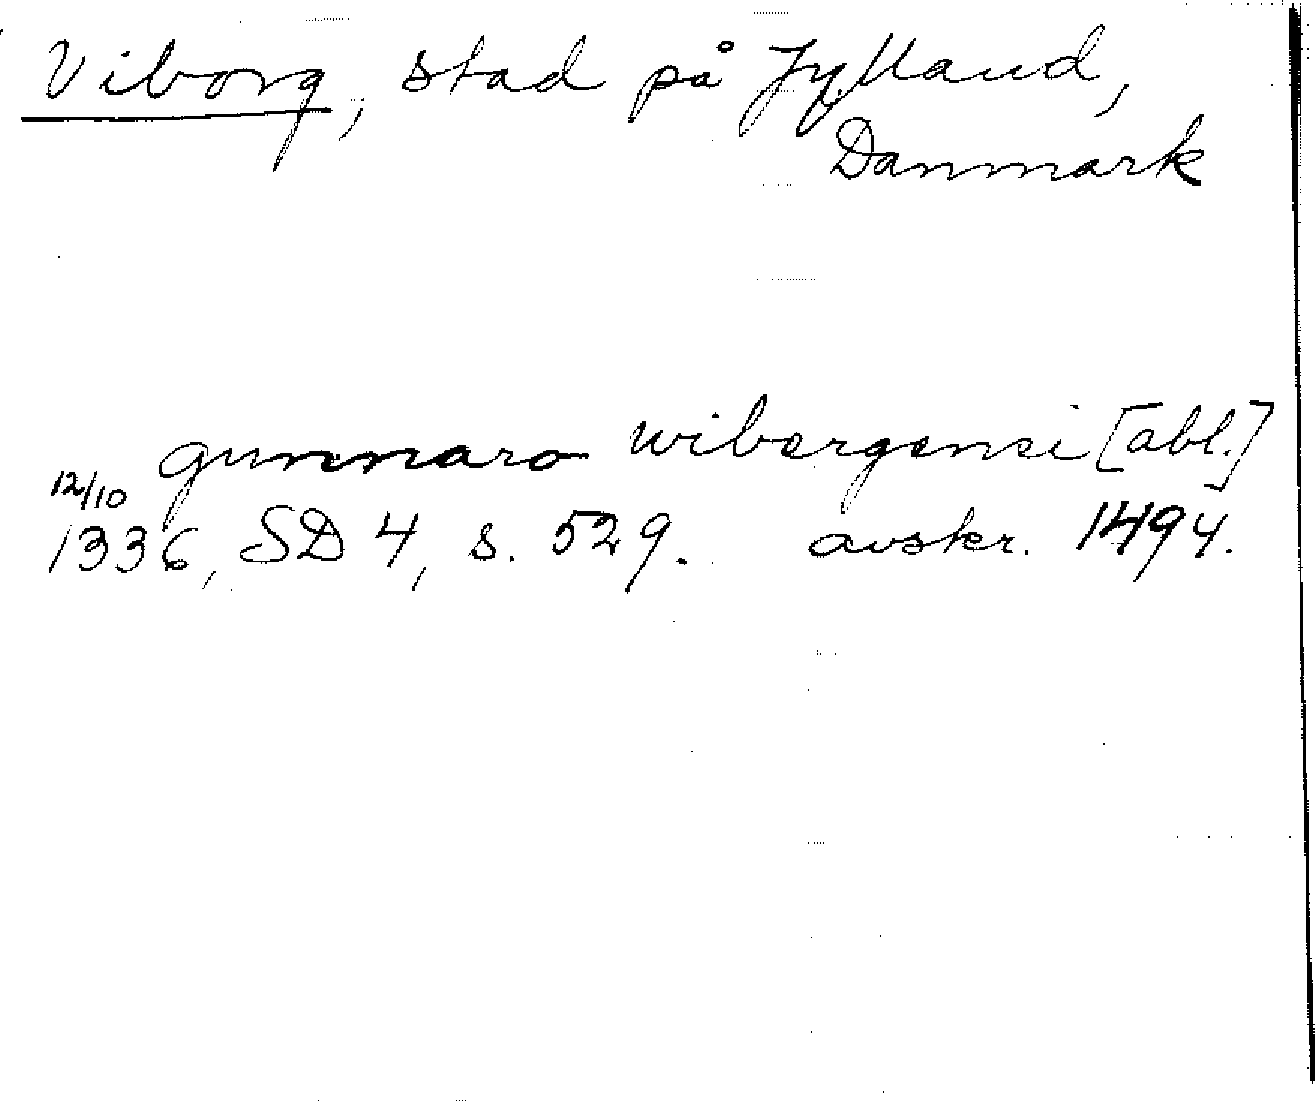 Viborg, stad på Jylland,
Danmark
gunnaro wibergensi [abl.]
12/10
1336, SD 4, s. 529. avskr. 1494.